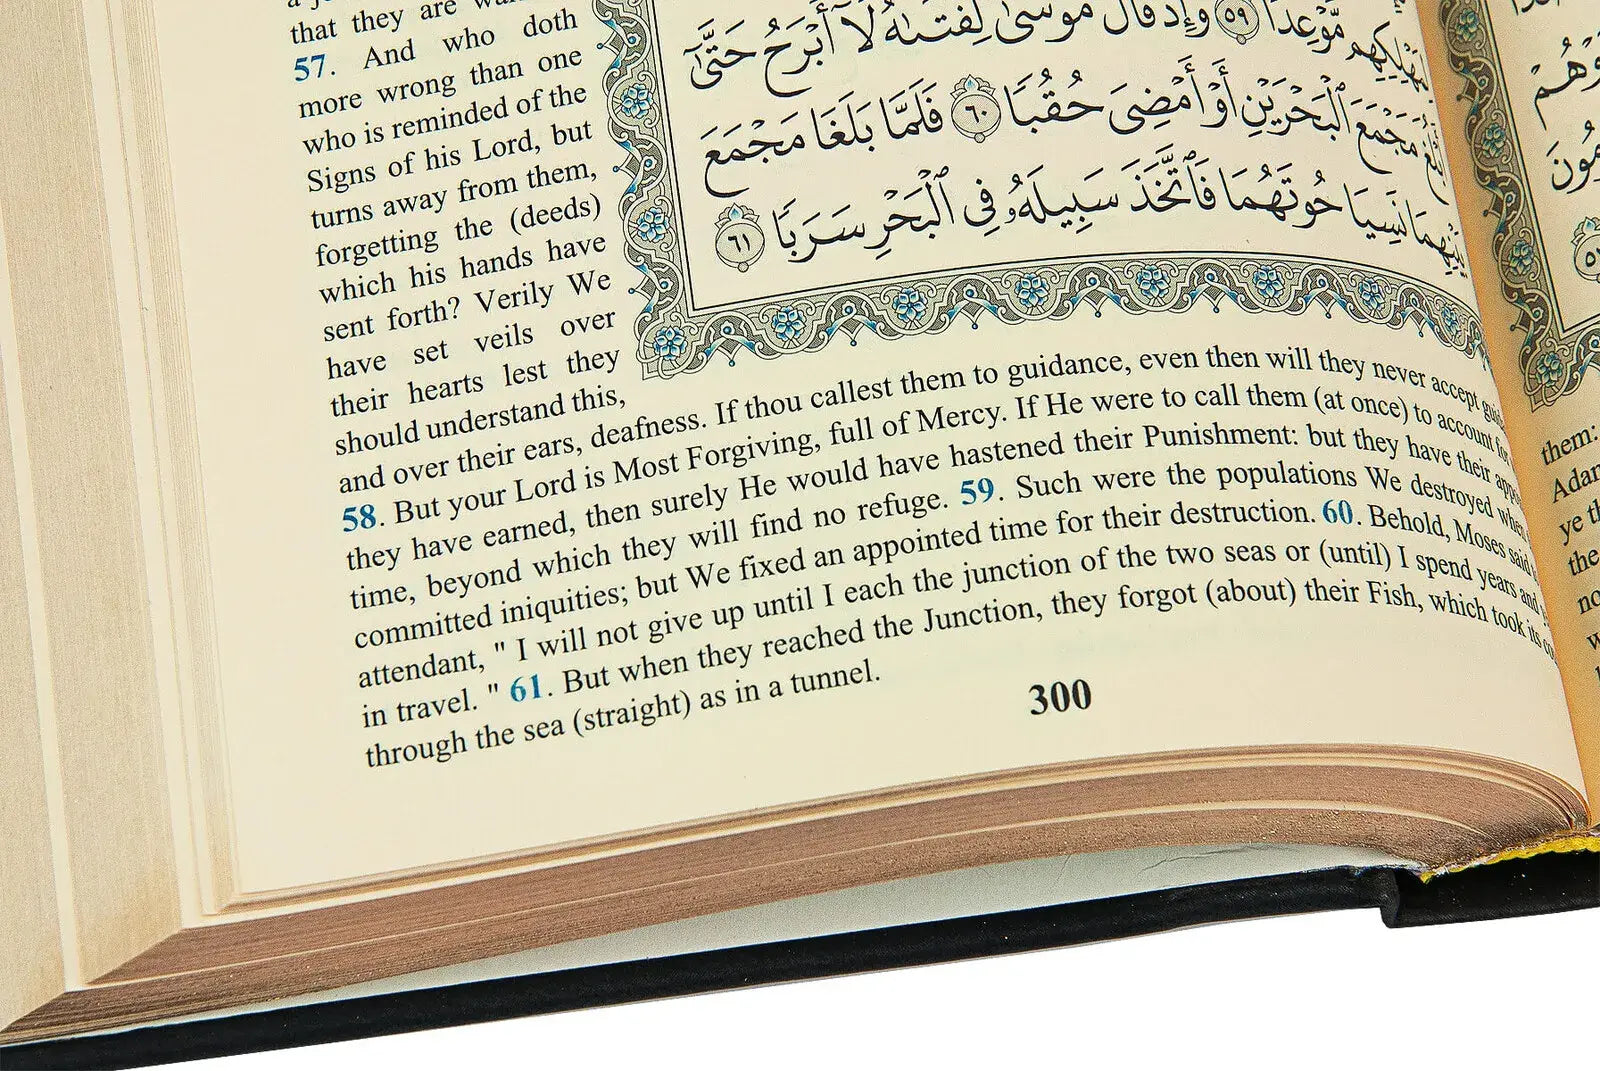 that they are
57. And who doth
more wrong than one
who is reminded of the
Signs of his Lord, but
turns away from them,
forgetting the (deeds)
which his hands have
sent forth? Verily We
have set veils over
their hearts lest they
should understand this,
مَّوْعِدًا ٥٩ وَإِذْ قَالَ مُوسَىٰ لِفَتَىٰهُ لَآ أَبْرَحُ حَتَّىٰٓ
أَبْلُغَ مَجْمَعَ ٱلْبَحْرَيْنِ أَوْ أَمْضِىَ حُقُبًا ٦٠ فَلَمَّا بَلَغَا مَجْمَعَ
بَيْنِهِمَا نَسِيَا حُوتَهُمَا فَٱتَّخَذَ سَبِيلَهُۥ فِى ٱلْبَحْرِ سَرَبًا ٦١
and over their ears, deafness. If thou callest them to guidance, even then will they never accept
58. But your Lord is Most Forgiving, full of Mercy. If He were to call them (at once) to account for
they have earned, then surely He would have hastened their Punishment: but they have their
time, beyond which they will find no refuge. 59. Such were the populations We destroyed
committed iniquities; but We fixed an appointed time for their destruction. 60. Behold, Moses said
attendant, " I will not give up until I each the junction of the two seas or (until) I spend years and
in travel. " 61. But when they reached the Junction, they forgot (about) their Fish, which took its
through the sea (straight) as in a tunnel.
300
وُهُمْ
them:
ye
the